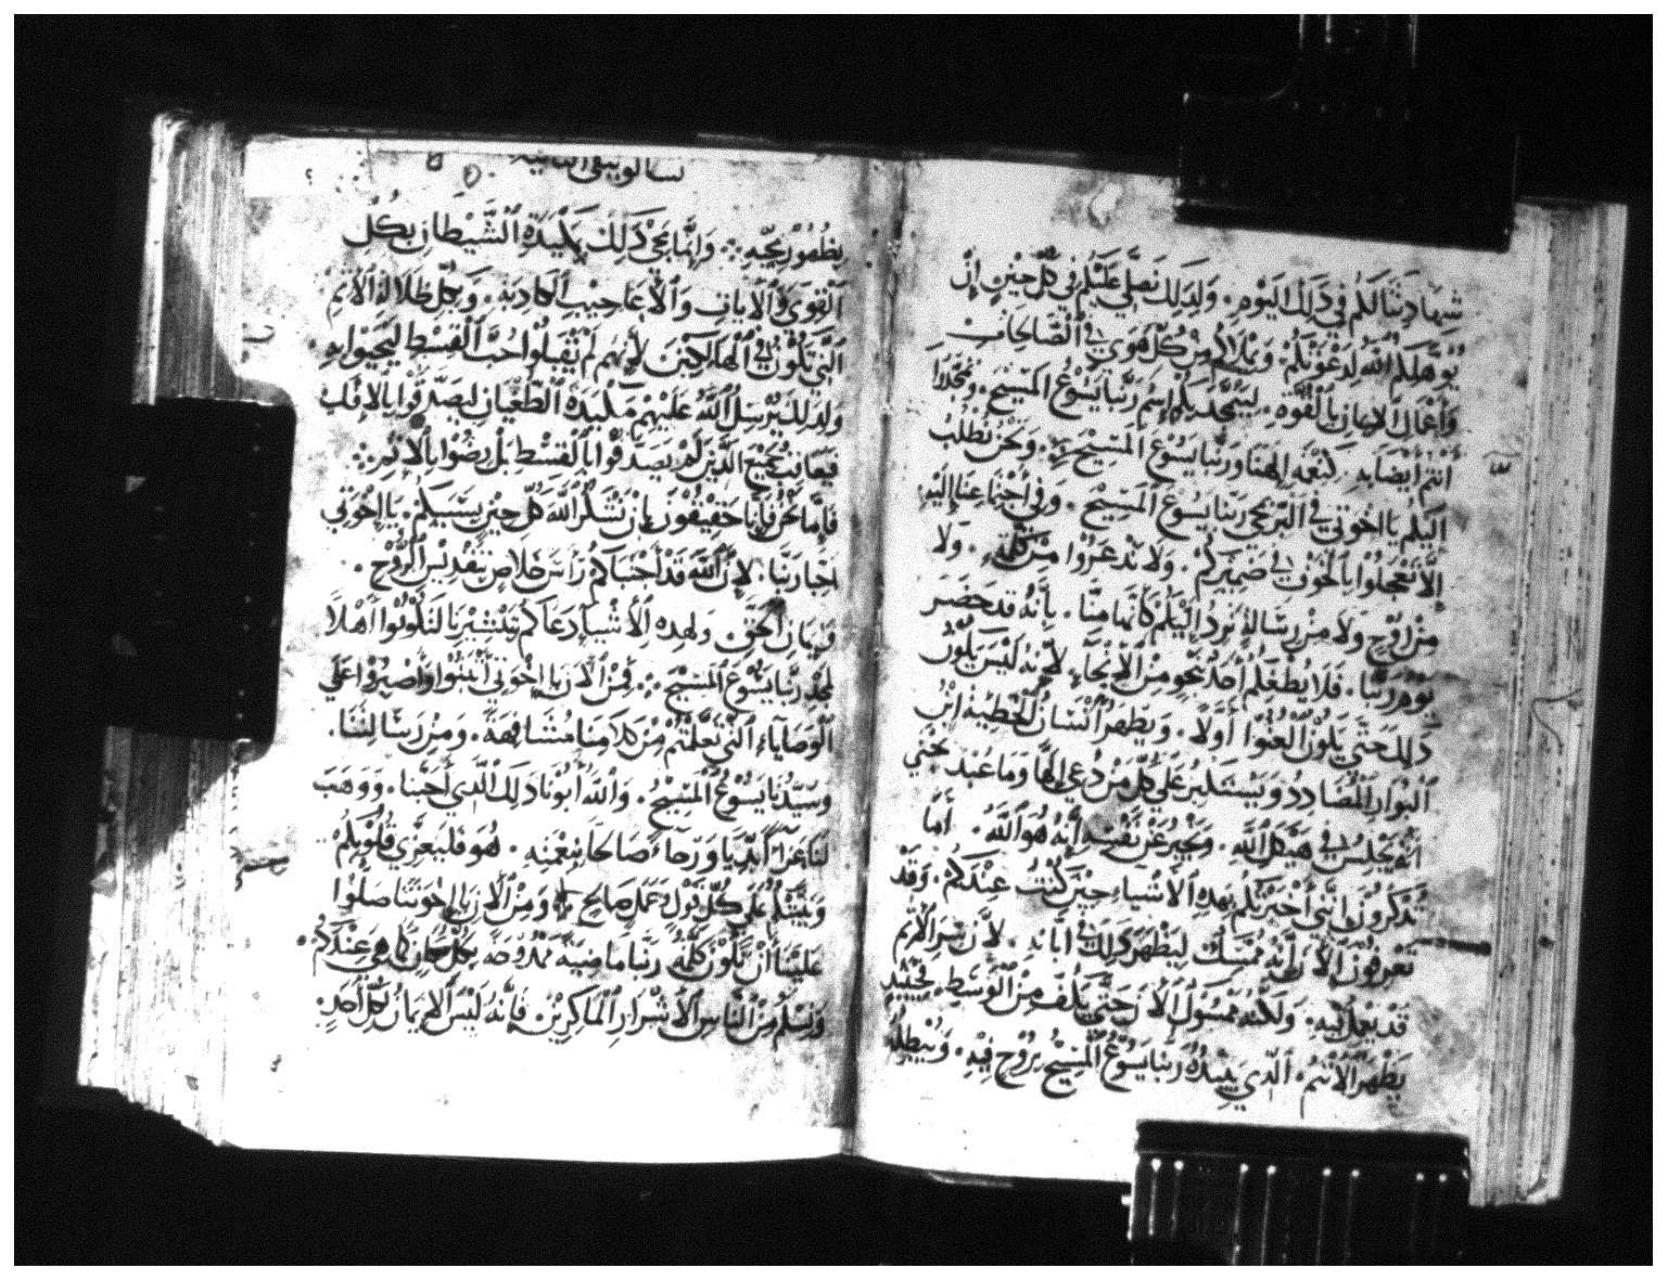 شهادتنا لكم في ذلك اليوم. ولذلك نصلي عليكم في كل حين إن
يوهلكم الله لدعوتكم. ويملاكم من كل هوي في الصالحات
وأعمال الايمان بالقوه. ليتمجد بكم إسم ربنا يسوع المسيح. وتمجدوا
أنتم أيضا به. كنعمه إلهنا وربنا يسوع المسيح ونحن نطلب
اليكم يا اخوتي في البر بمجي ربنا يسوع المسيح. وفي اجتماعنا إليه
إلا تعجلوا بالخوف في ضميركم. ولا تدعروا من كلمة. ولا
من روح ولا من رسالة ترد إليكم كانها منا. بانه قد حضر
يوم ربنا. فلا يطغيكم أحد بنحو من الانحاء لانه ليس يكون
ذلك حتي يكون العنوا أولا. ويظهر انسان الخطية ابن
البوار المضادد ويستكبر على كل من دعي إلها وما عبد حتي
أنه يجلس في هيكل الله. ويخبر عن نفسه أنه هو الله. أما
تذكرون انني أخبرتكم بهذه الاشياء حين كنت عندكم. وقد
تعرفون الان أنه ممسك ليظهر ذلك في أبانه. لان سر الاثم
قد يعمل فيه. ولكنه ممسول الان حتي يكف من الوسط. فحينيد
يظهر الاثم. الذي يبيده ربنا يسوع المسيح بروح فيه. ويبطله
تسالونيقي الثانيه
بظهور مجيه. وانما مجي ذلك بمكيدة الشيطان بكل
القوي والايات والاعاجيب الكاذبه. وبكل ظلالة الاثم
التي تكون في الهالكين لأنهم لم يقبلوا حب القسط ليحيوا به
ولذلك يرسل الله عليهم مكيدة الطغيان ليصدقوا بالافك
فيعاقب جميع الذين لم يصدقوا بالقسط بل رضوا بالاثم
فاما نحن فانا حقيقون بان نشكر الله كل حين بسببكم. يا إخوتي
احبا ربنا. لان الله قد أجتباكم رأس خلاص بتقديس الروح.
وبيمان الحق. ولهذه الأشيا دعاكم بتبشيرنا لتكونوا أهلا
لمجد ربنا يسوع المسيح فمن الان يا إخوتي أثبتوا وأصبروا على
الوصاياء التي تعلمتم من كلامنا مشافهة. ومن رسالتنا.
وسيدنا يسوع المسيح. والله أبونا ذلك الذي أحبنا. ووهب
لنا عزاً أبدياً ورجاء صالحا بنعمته. هو فليعزي قلوبكم
ويثبت على كل قول وعمل صالح ومن الان يا إخوتنا صلوا
علينا أن تكون كلمة ربنا ماضية ممدوحة بكل مكان كما هي عندكم.
ونسلم من الناس الأشرار الماكرين. فإنه ليس الايمان لكل أحد